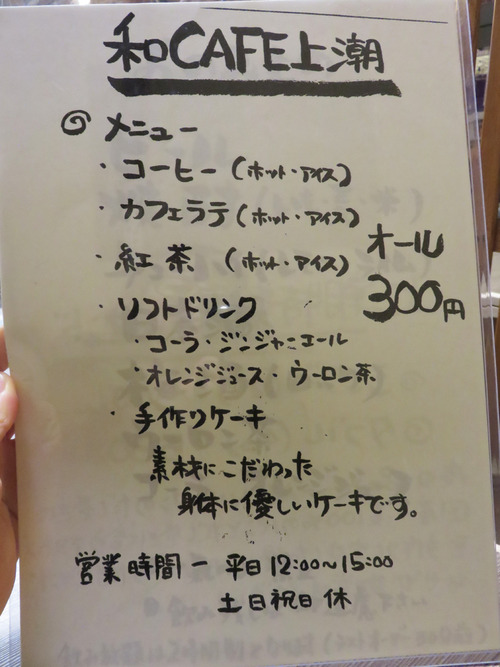 和CAFE上潮
◎ メニュー
・コーヒー(ホット・アイス)
・カフェラテ(ホット・アイス)
・紅茶 (ホット・アイス)
オール
300円
・ソフトドリンク
・コーラ・ジンジャーエール
・オレンジジュース・ウーロン茶
・手作りケーキ
素材にこだわった
身体に優しいケーキです。
営業時間ー 平日12:00~15:00
土日祝日休